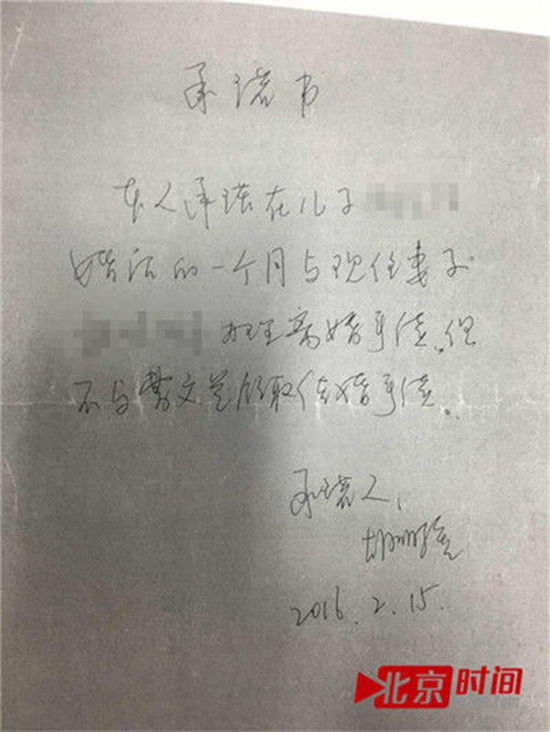 承诺书
本人承诺在儿子
婚后的一个月与现任妻子
办理离婚手续,但
不与曹文兰领取结婚手续。
承诺人:
2016.2.15.
北京时间